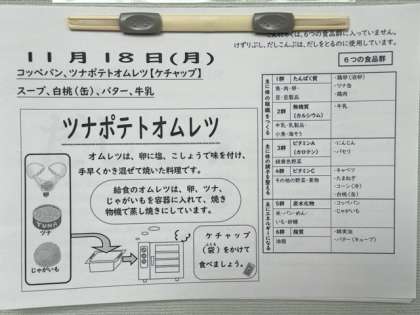 こんにゃくは、6つの食品群に入っていません。
けずりぶし、だしこんぶは、だしをとるのに使用しています。
11月18日(月)
コッペパン、ツナポテトオムレツ【ケチャップ】
スープ、白桃(缶)、バター、牛乳
ツナポテトオムレツ
オムレツは、卵に塩、こしょうで味を付け、
手早くかき混ぜて焼いた料理です。
給食のオムレツは、卵、ツナ、
じゃがいもを容器に入れて、焼き
物機で蒸し焼きにしています。
TUNA
ツナ
じゃがいも
ケチャップ
(袋)をかけて
食べましょう。
6つの食品群
1群 たんぱく質
魚・肉・卵・
豆・豆製品
鶏卵(液卵)
ツナ缶
鶏肉
2群 無機質
(カルシウム)
牛乳・乳製品・
小魚・海そう
・牛乳
3群 ビタミンA
(カロテン)
緑黄色野菜
・にんじん
・パセリ
4群 ビタミンC
その他の野菜・果物
・キャベツ
・たまねぎ
・コーン(冷)
・白桃(缶)
5群 炭水化物
米・パン・めん・
いも・砂糖
・コッペパン
・じゃがいも
6群 脂質
油脂
・綿実油
・バター(キューブ)